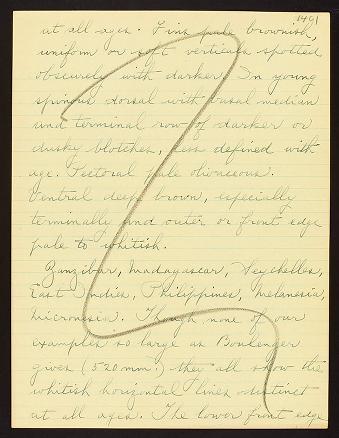 1401
at all ages. Fins pale brownish,
uniform or soft verticals spotted
obscurely with darker. In young
spinous dorsal with basal median
and terminal row of darker or
dusky blotches, less defined with
age. Pectoral pale olivaceous.
Ventral deep brown, especially
terminally and outer or front edge
pale to whitish.
Zanzibar, Madagascar, Seychelles,
East Indies, Philippines, Melanesia,
Micronesia. Though none of our
examples so large as Boulenger
gives (520 mm.) they all show the
whitish horizontal lines distinct
at all ages. The lower front edge